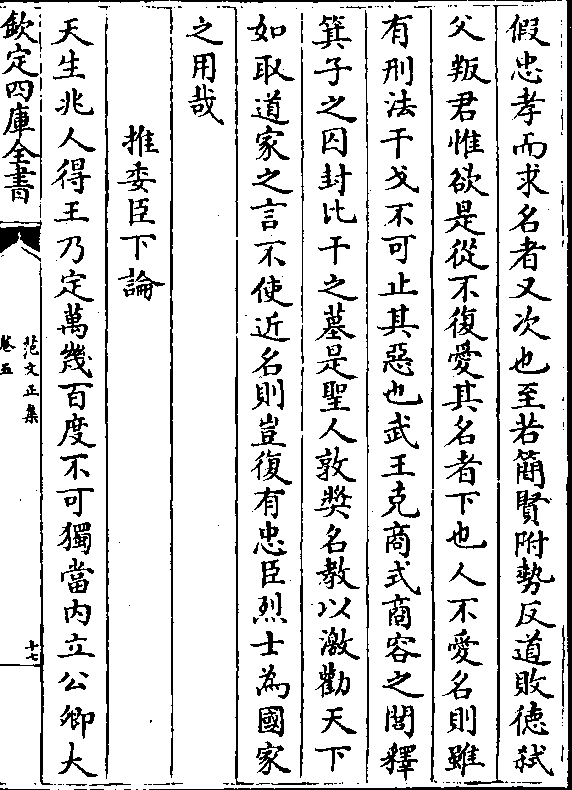 假忠孝而求名者又次也至若簡賢附勢反道敗德弑
父叛君惟欲是從不復愛其名者下也人不愛名則雖
有刑法干戈不可止其惡也武王克商式商容之閭釋
箕子之囚封比干之墓是聖人敦奬名教以激勸天下
如取道家之言不使近名則豈復有忠臣烈士為國家
之用哉
推委臣下論
天生兆人得王乃定萬幾百度不可獨當内立公卿大
欽定四庫全書
范文正集
卷五
十七